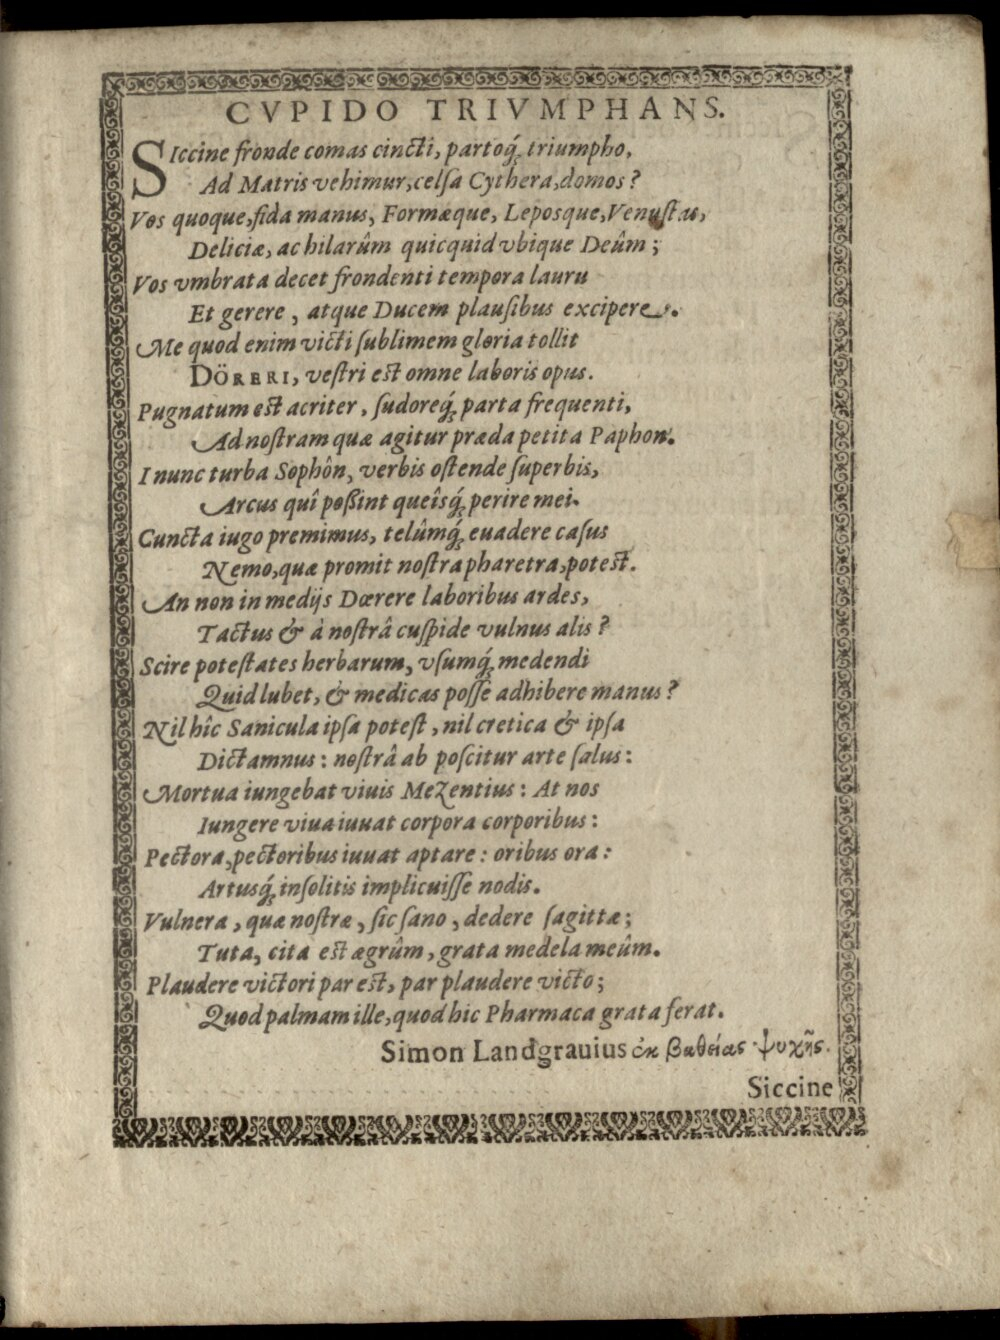 CVPIDO TRIVMPHANS.
SIccine fronde comas cincti, partoq́; triumpho,
Ad Matris vehimur, celſa Cythera, domos?
Vos quoque, fida manus, Formæque, Leposque, Venuſtas,
Deliciæ, ac hilarûm quicquid vbique Deûm;
Vos vmbrata decet frondenti tempora lauru
Et gerere, atque Ducem plauſibus excipere.
Me quod enim victi ſublimem gloria tollit
DÖRERI, veſtri est omne laboris opus.
Pugnatum est acriter, ſudoreq́; parta frequenti,
Ad noſtram quæ agitur præda petita Paphon.
I nunc turba Sophôn, verbis oſtende ſuperbis,
Arcus quî poßint queîsq́; perire mei.
Cuncta iugo premimus, telûmq́; euadere caſus
Nemo, quæ promit noſtra pharetra, poteſt.
An non in medijs Dœrere laboribus ardes,
Tactus & à noſtrâ cuſpide vulnus alis?
Scire poteſtates herbarum, vſumq́; medendi
Quid lubet, & medicas poſſe adhibere manus?
Nil hîc Sanicula ipſa poteſt, nil cretica & ipſa
Dictamnus: noſtrâ ab poſcitur arte ſalus:
Mortua iungebat viuis Mezentius: At nos
Iungere viua iuuat corpora corporibus:
Pectora, pectoribus iuuat aptare: oribus ora:
Artusq́; inſolitis implicuiſſe nodis.
Vulnera, quæ noſtræ, ſic ſano, dedere ſagittæ;
Tuta, cita est ægrûm, grata medela meûm.
Plaudere victori par est, par plaudere victo;
Quod palmam ille, quod hic Pharmaca grata ferat.
Simon Landgrauius ἐκ βαθείας ψυχῆς.
Siccine